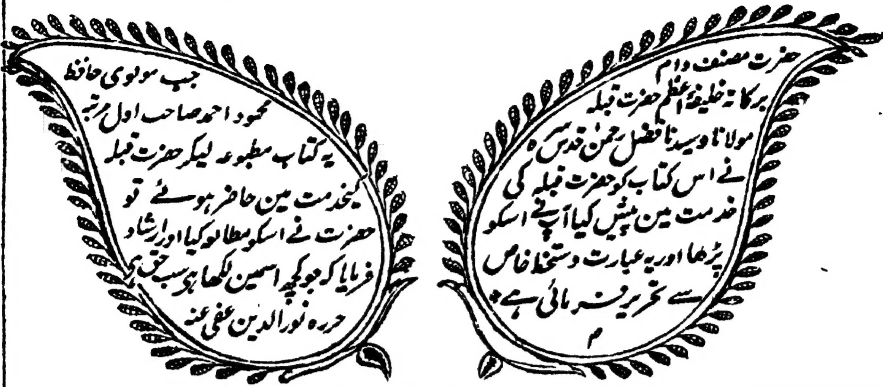 حضرت مصنف دام
برکاتہ خلیفۂ اعظم حضرت قبلہ
مولانا وسیدنا فضل رحمٰن قدس سرہ
نے اس کتاب کو حضرت قبلہ کی
خدمت مین پیش کیا آپ نے اسکو
پڑھا اور یہ عبارت دستخط خاص
سے تحریر فرمائی ہے*
م
جب مولوی حافظ
محمود احمد صاحب اول مرتبہ
یہ کتاب مطبوعہ لیکر حضرت قبلہ
کیخدمت مین حاضر ہوئے تو
حضرت نے اسکو مطالعہ کیا اور ارشاد
فرمایا کہ جو کچھ اسمین لکھا ہی سب حق ہی
حررہ نور الدین عفی عنہ